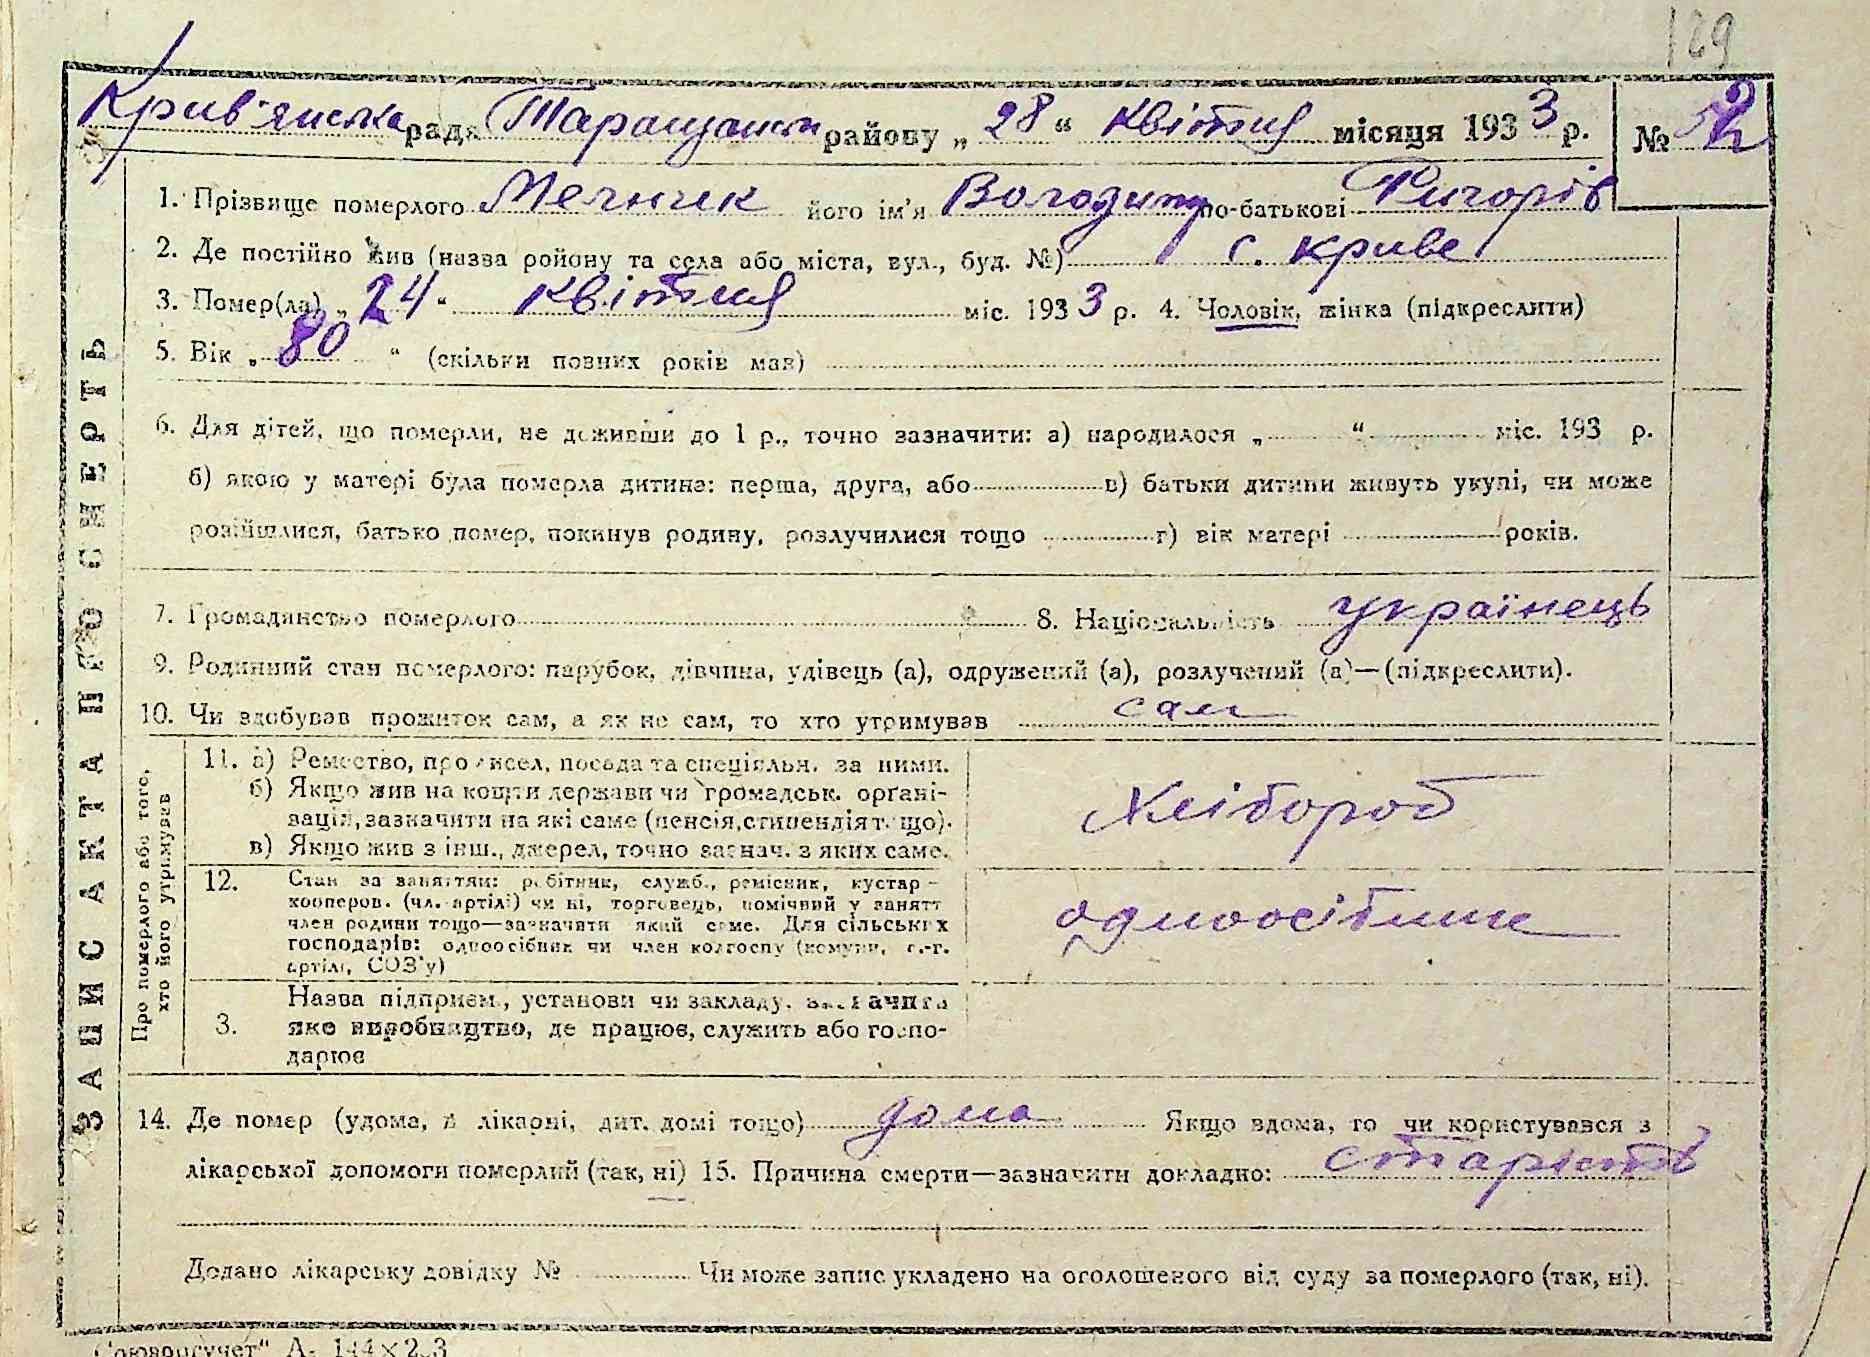 129
Крив'янська рада Таращанськ району „ 28 “ квітня місяця 1933 р. № 52
1. Прізвище померлого Мечник його ім'я Володимир по-батькові Григорів
2. Де постійно жив (назва ройону та села або міста, вул., буд. №) с. Криве
3. Помер(ла) „ 24 “ квітня міс. 1933 р. 4. Чоловік, жінка (підкреслити)
5. Вік „ 80 “ (скільки повних років мав)
6. Для дітей, що померли, не доживши до 1 р., точно зазначити: а) народилося „ “ міс. 193 р.
б) якою у матері була померла дитина: перша, друга, або в) батьки дитини живуть укупі, чи може
розійшлися, батько помер, покинув родину, розлучилися тощо г) вік матері років.
7. Громадянство померлого 8. Національність українець
9. Родинний стан померлого: парубок, дівчина, удівець (а), одружений (а), розлучений (а)—(підкреслити).
10. Чи здобував прожиток сам, а як не сам, то хто утримував сам
ЗАПИС АКТА ПРО СМЕРТЬ
Про померлого або того,
хто його утримував
11. а) Ремество, промисел, посада та спеціяльн. за ними.
б) Якщо жив на кошти держави чи громадськ. органі-
зацій, зазначити на які саме (пенсія, стипендія т. що).
в) Якщо жив з інш., джерел, точно зазнач. з яких саме.
Хлібороб
12. Стан за заняттям: робітник, служб., ремісник, кустар-
кооперов. (чл. артілі) чи ні, торговець, помічний у занятт
член родини тощо—зазначити який саме. Для сільських
господарів: одноосібник чи член колгоспу (комуни, с.-г.
артілі, СОЗ'у)
одноосібник
3. Назва підприєм., установи чи закладу, зазначити
яке виробництво, де працює, служить або госпо-
дарює
14. Де помер (удома, в лікарні, дит. домі тощо) дома Якщо вдома, то чи користувався з
лікарської допомоги померлий (так, ні) 15. Причина смерти—зазначити докладно: старість
Додано лікарську довідку № Чи може запис укладено на оголошеного від суду за померлого (так, ні).